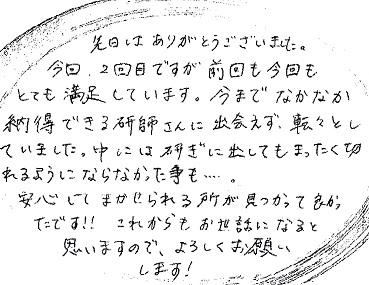 先日は ありがとうございました。
今回、2回目ですが 前回も 今回も
とても 満足 しています。今まで なかなか
納得できる研師さんに 出会えず、転々とし
ていました。中には研ぎに出してもまったく切
れるようにならなかった事も‥‥。
安心してまかせられる所が見つかって良かっ
たです!! これからもお世話になると
思いますので、よろしくお願い
します!